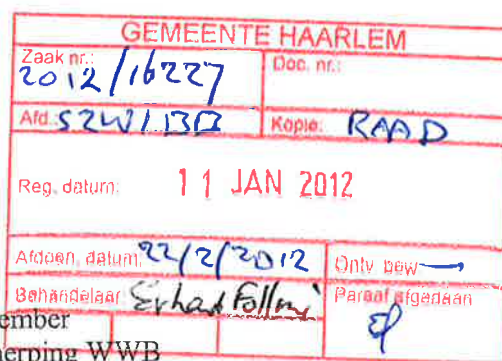 GEMEENTE HAARLEM
Zaak nr.: Doc. nr.:
2012/16227
Afd.: SZW/BB Kopie: RAAD
Reg. datum: 11 JAN 2012
Afdoen. datum: 22/2/2012 Ontv. bew
Behandelaar: Erhard Follmi Paraaf afgedaan
ember
herping WWB